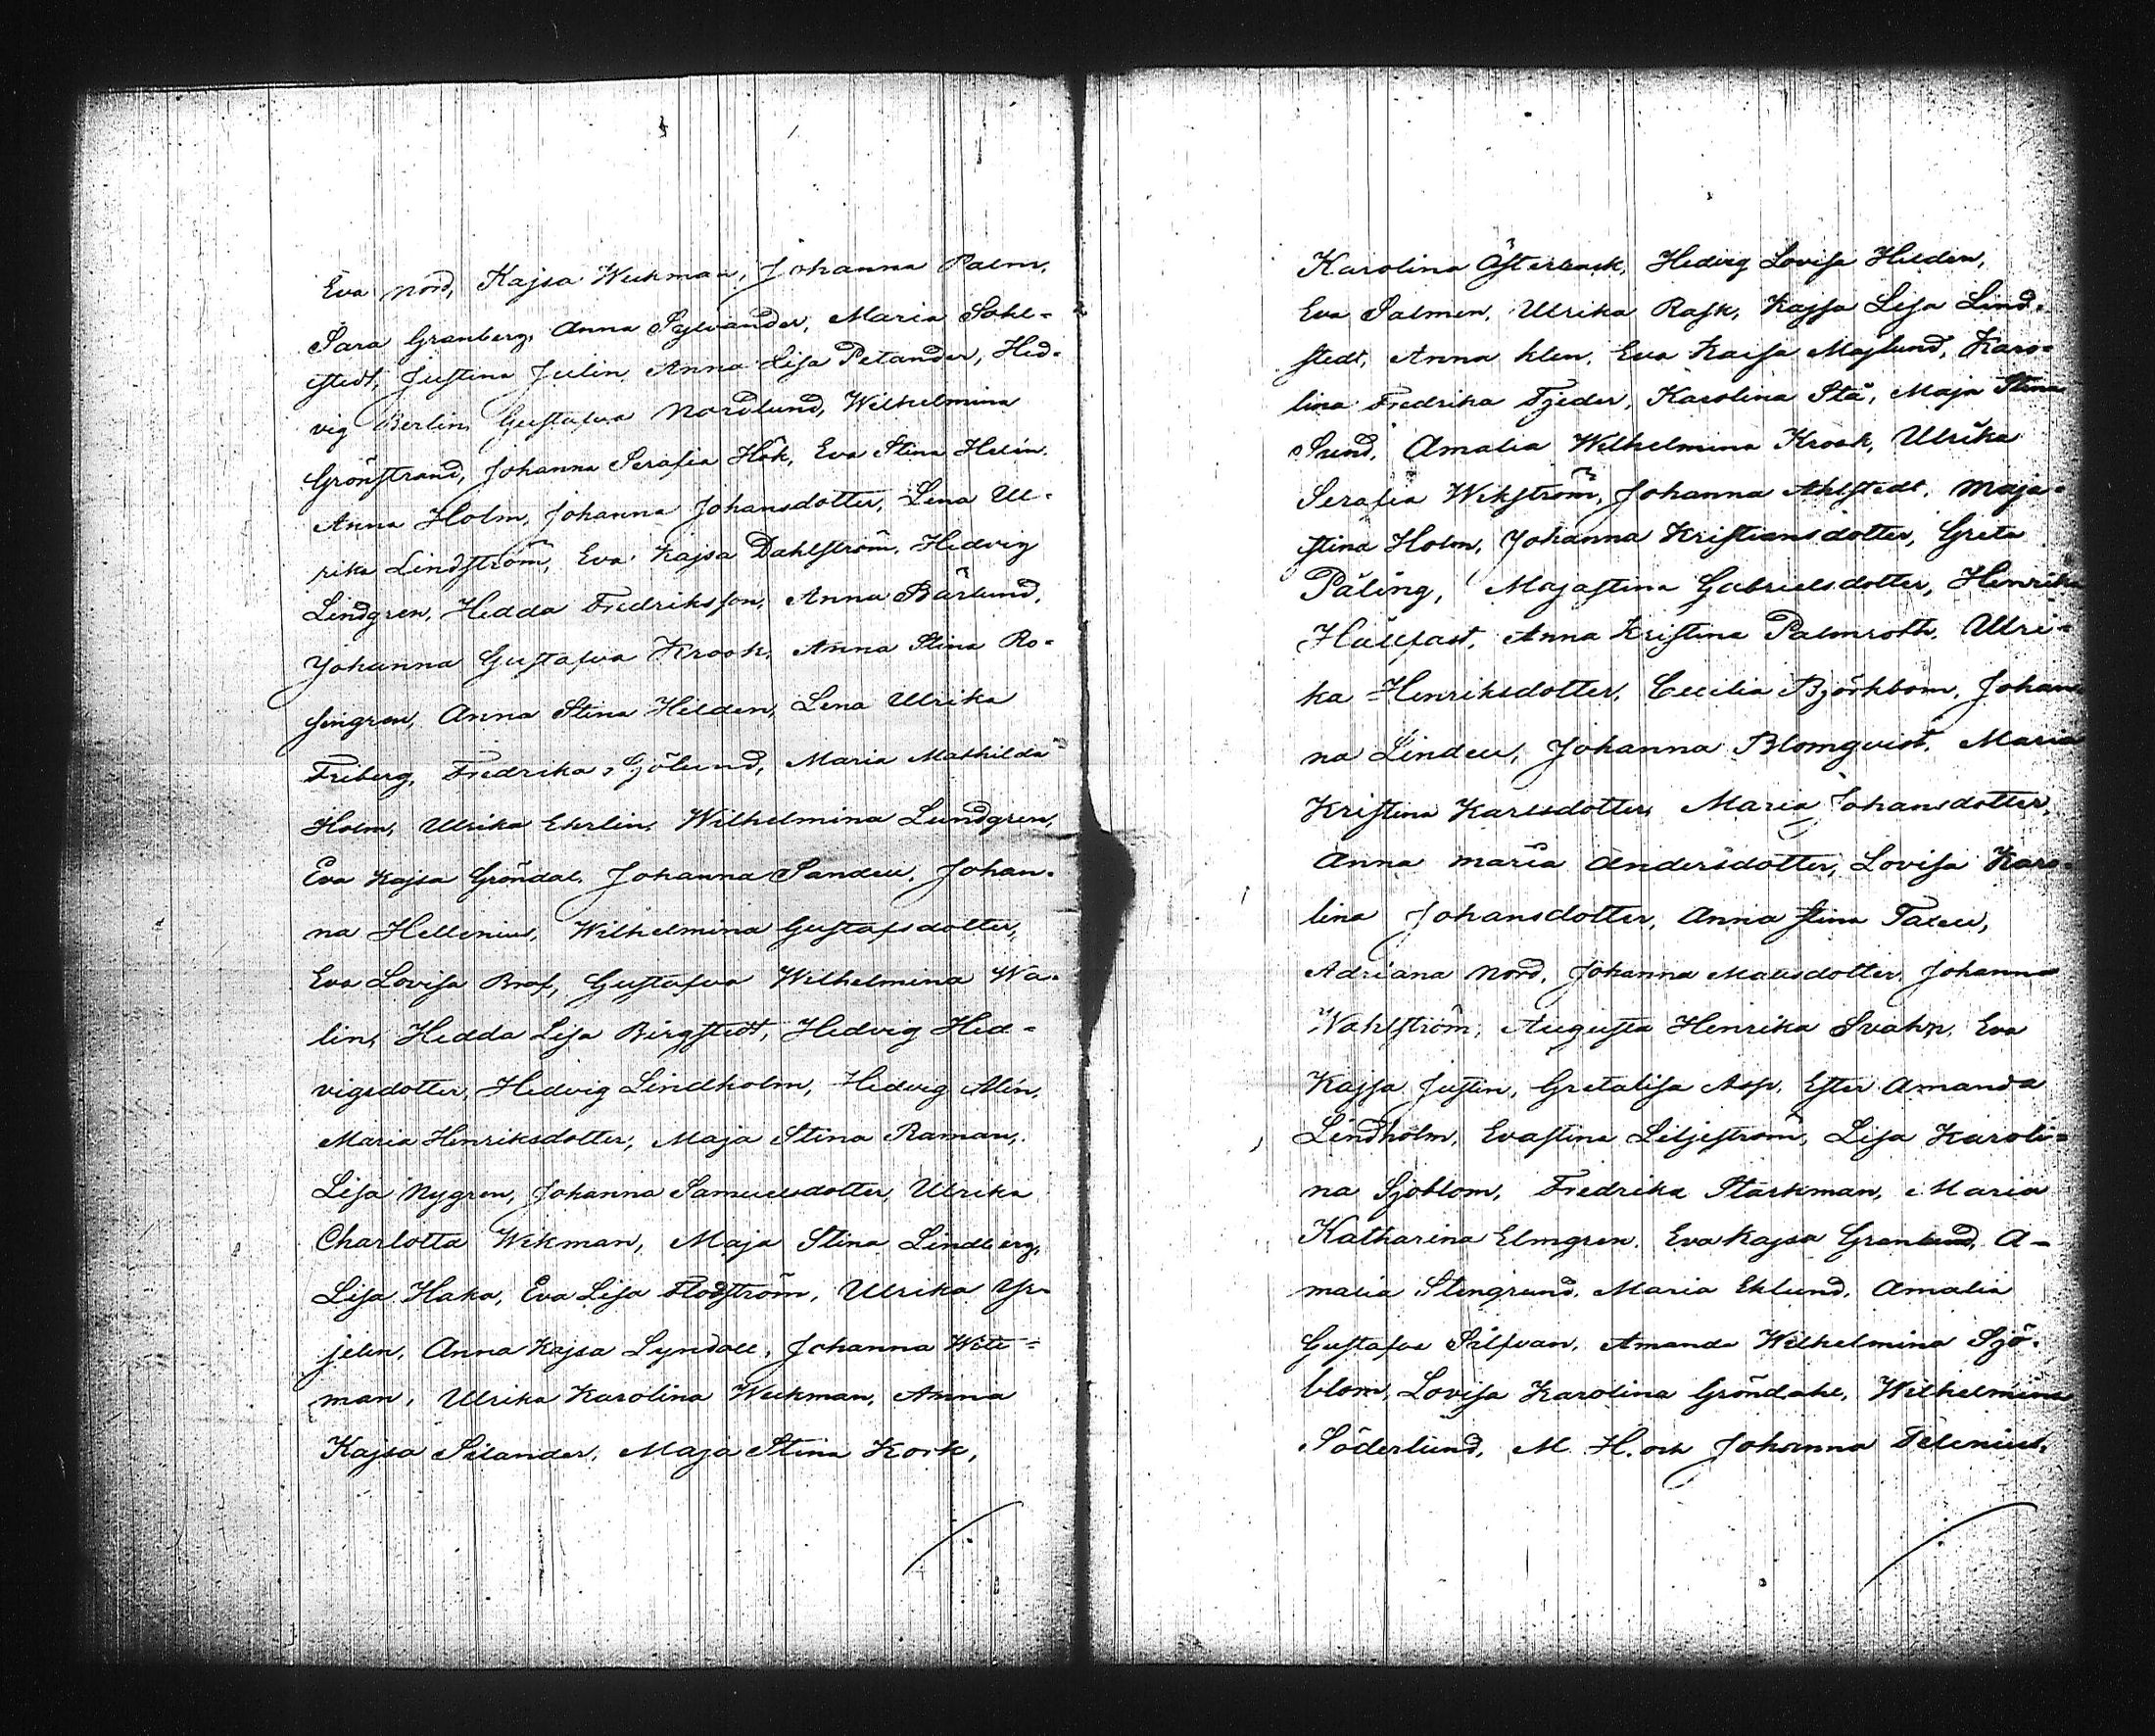 Eva Nord, Kajsa Weckman, Johanna Palm,
Sara Granberg, Anna Sylvander, Maria Sohl-
stedt, Justina Julin, Anna Lisa Petander, Hed-
vig Berlin, Gustafva Nordlund, Wilhelmina
Grönstrand, Johanna Serafia Hök, Eva Stina Helin,
Anna Holm, Johanna Johansdotter, Lena Ul-
rika Lindström, Eva Kajsa Dahlström, Hedvig
Lindgren, Hedda Fredriksson, Anna Bärlund,
Johanna Gustafva Krook, Anna Stina Ro-
sengren, Anna Stina Helden, Lena Ulrika
Friberg, Fredrika Sjölund, Maria Mathilda
Holm, Ulrika Ekelin, Wilhelmina Lundgren,
Eva Kajsa Gröndal, Johanna Sandell, Johan-
na Hellenius, Wilhelmina Gustafsdotter,
Eva Lovisa Braf, Gustafva Wilhelmina Wa-
lin, Hedda Lisa Birgstedt, Hedvig Hed-
vigsdotter, Hedvig Lindholm, Hedvig Alén,
Maria Henriksdotter, Maja Stina Raman,
Lisa Nygren, Johanna Samuelsdotter, Ulrika
Charlotta Wikman, Maja Stina Lindberg,
Lisa Haka, Eva Lisa Flodström, Ulrika Yr-
jelin, Anna Kajsa Lyndall, Johanna Wite-
man, Ulrika Karolina Weckman, Anna
Kajsa Silander, Maja Stina Kork,
Karolina Österback, Hedvig Lovisa Helden,
Eva Salmen, Ulrika Rask, Kajsa Lisa Lind-
stedt, Anna Klen, Eva Kaisa Maslund, Karo-
lina Fredrika Fjeder, Karolina Stå, Maja Stina
Sund, Amalia Wilhelmina Krook, Ulrika
Serafia Wikström, Johanna Ahlstedt, Maja-
stina Holm, Johanna Kristiansdotter, Greta
Påling, Majastina Gabrielsdotter, Henrika
Hållfast, Anna Kristina Palmroth, Ulri-
ka Henriksdotter, Cecilia Björkbom, Johan-
na Lindell, Johanna Blomqvist, Maria
Kristina Karlsdotter, Maria Johansdotter,
Anna Maria Andersdotter, Lovisa Karo-
lina Johansdotter, Anna Stina Tallu,
Adriana Nord, Johanna Mattsdotter, Johanna
Wahlström, Augusta Henrika Svahn, Eva
Kajsa Justin, Gretalisa Asp, Ester Amanda
Lindholm, Evastina Liljeström, Lisa Karoli-
na Sjöblom, Fredrika Starkman, Maria
Katharina Elmgren, Eva Kajsa Granlund, A-
malia Stengrund, Maria Eklund, Amalia
Gustafva Silfvan, Amanda Wilhelmina Sjö-
blom, Lovisa Karolina Gröndahl, Wilhelmina
Söderlund, M. H. och Johanna Telenius.